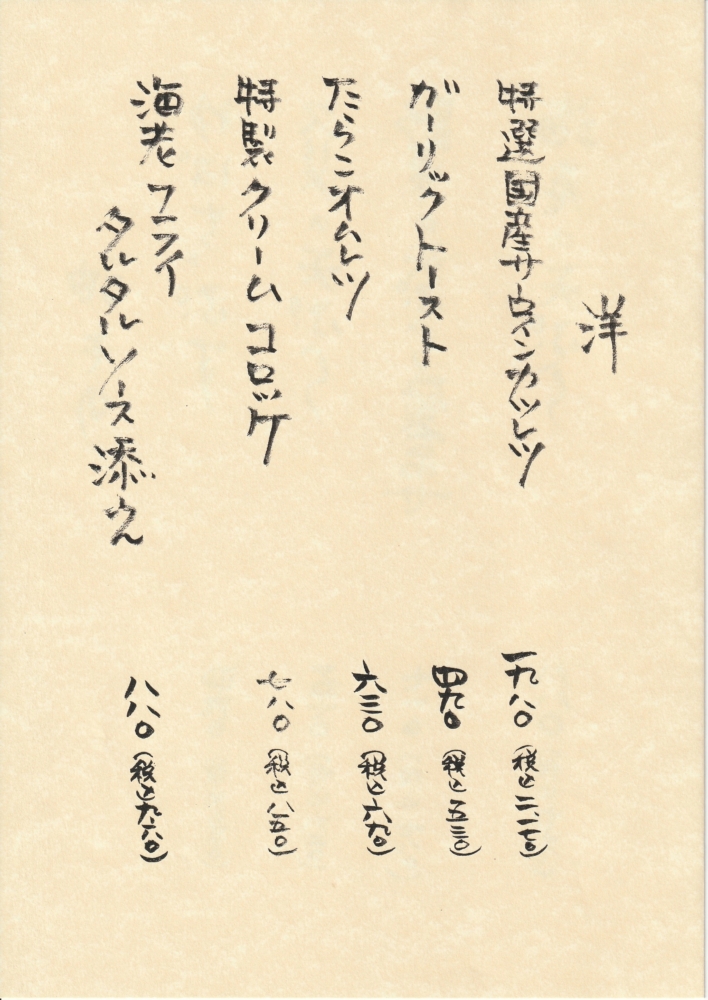 洋
特選国産サーロインカツレツ 一九八〇(税込二、一七〇)
ガーリックトースト 四九〇(税込五三〇)
たらこオムレツ 六三〇(税込六九〇)
特製クリームコロッケ 七八〇(税込八五〇)
海老フライ
タルタルソース添え 八八〇(税込九六〇)